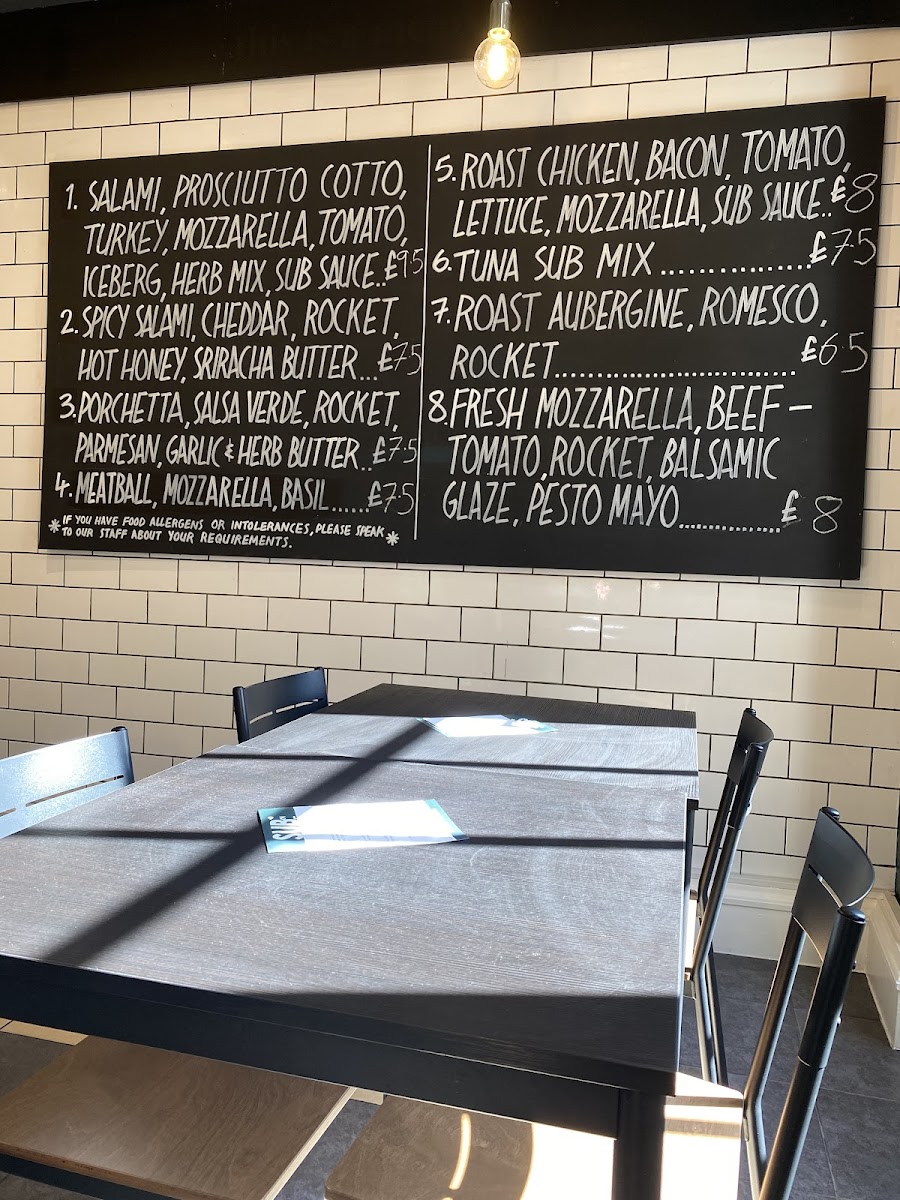 1. SALAMI, PROSCIUTTO COTTO,
TURKEY, MOZZARELLA, TOMATO,
ICEBERG, HERB MIX, SUB SAUCE..£9.5
2. SPICY SALAMI, CHEDDAR, ROCKET,
HOT HONEY, SRIRACHA BUTTER...£7.5
3. PORCHETTA, SALSA VERDE, ROCKET,
PARMESAN, GARLIC & HERB BUTTER..£7.5
4. MEATBALL, MOZZARELLA, BASIL......£7.5
* IF YOU HAVE FOOD ALLERGENS OR INTOLERANCES, PLEASE SPEAK
TO OUR STAFF ABOUT YOUR REQUIREMENTS. *
5. ROAST CHICKEN, BACON, TOMATO,
LETTUCE, MOZZARELLA, SUB SAUCE..£8
6. TUNA SUB MIX ................£7.5
7. ROAST AUBERGINE, ROMESCO,
ROCKET..............................£6.5
8. FRESH MOZZARELLA, BEEF -
TOMATO, ROCKET, BALSAMIC
GLAZE, PESTO MAYO..............£8
SUB